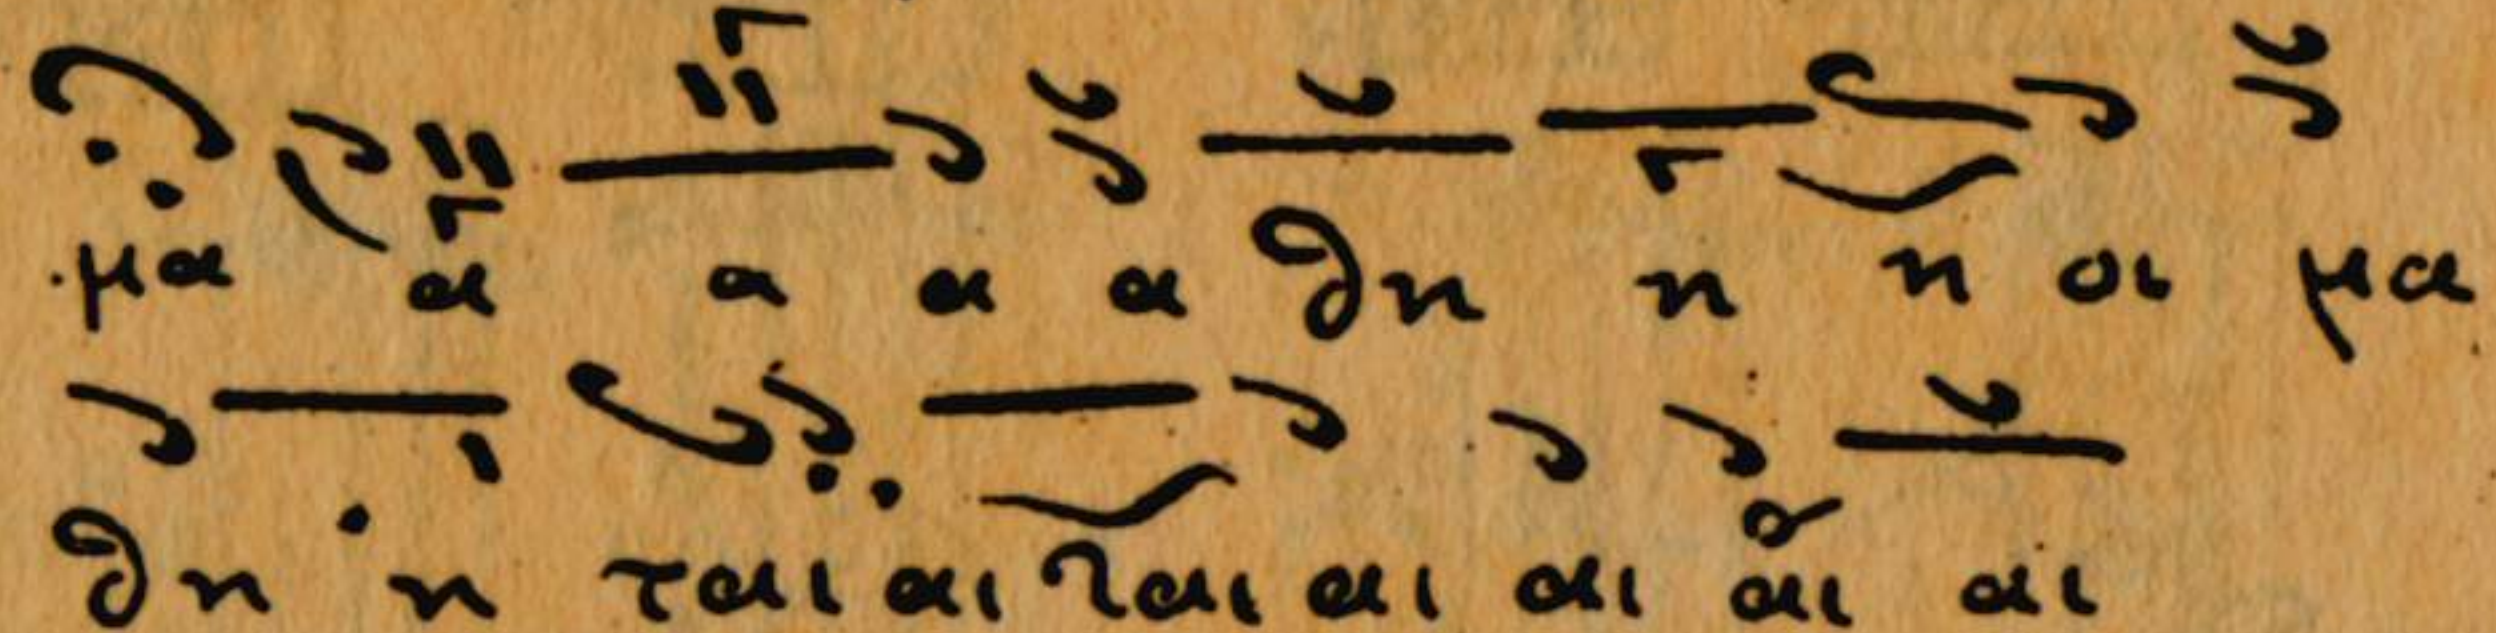 μα α α α α θη η η οι μα
θη η ται αι ται αι αι αι αι